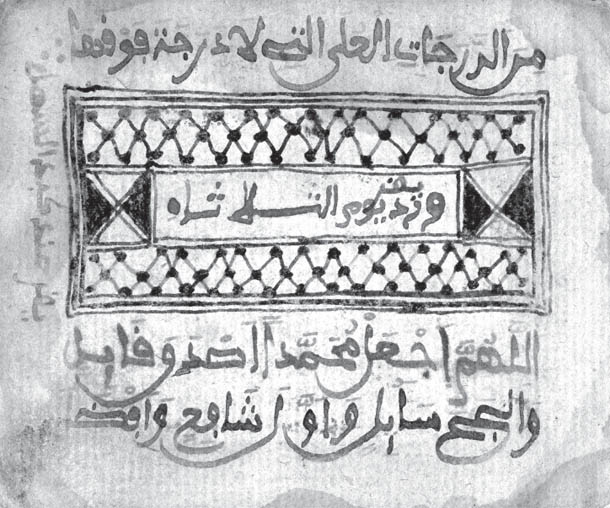 من الدرجات العلى التي لا درجة فوقها
ورد يوم الثلاثاه
اللهم اجعل محمدا اصدق قايل
وانجح سايل واول شافع وافض